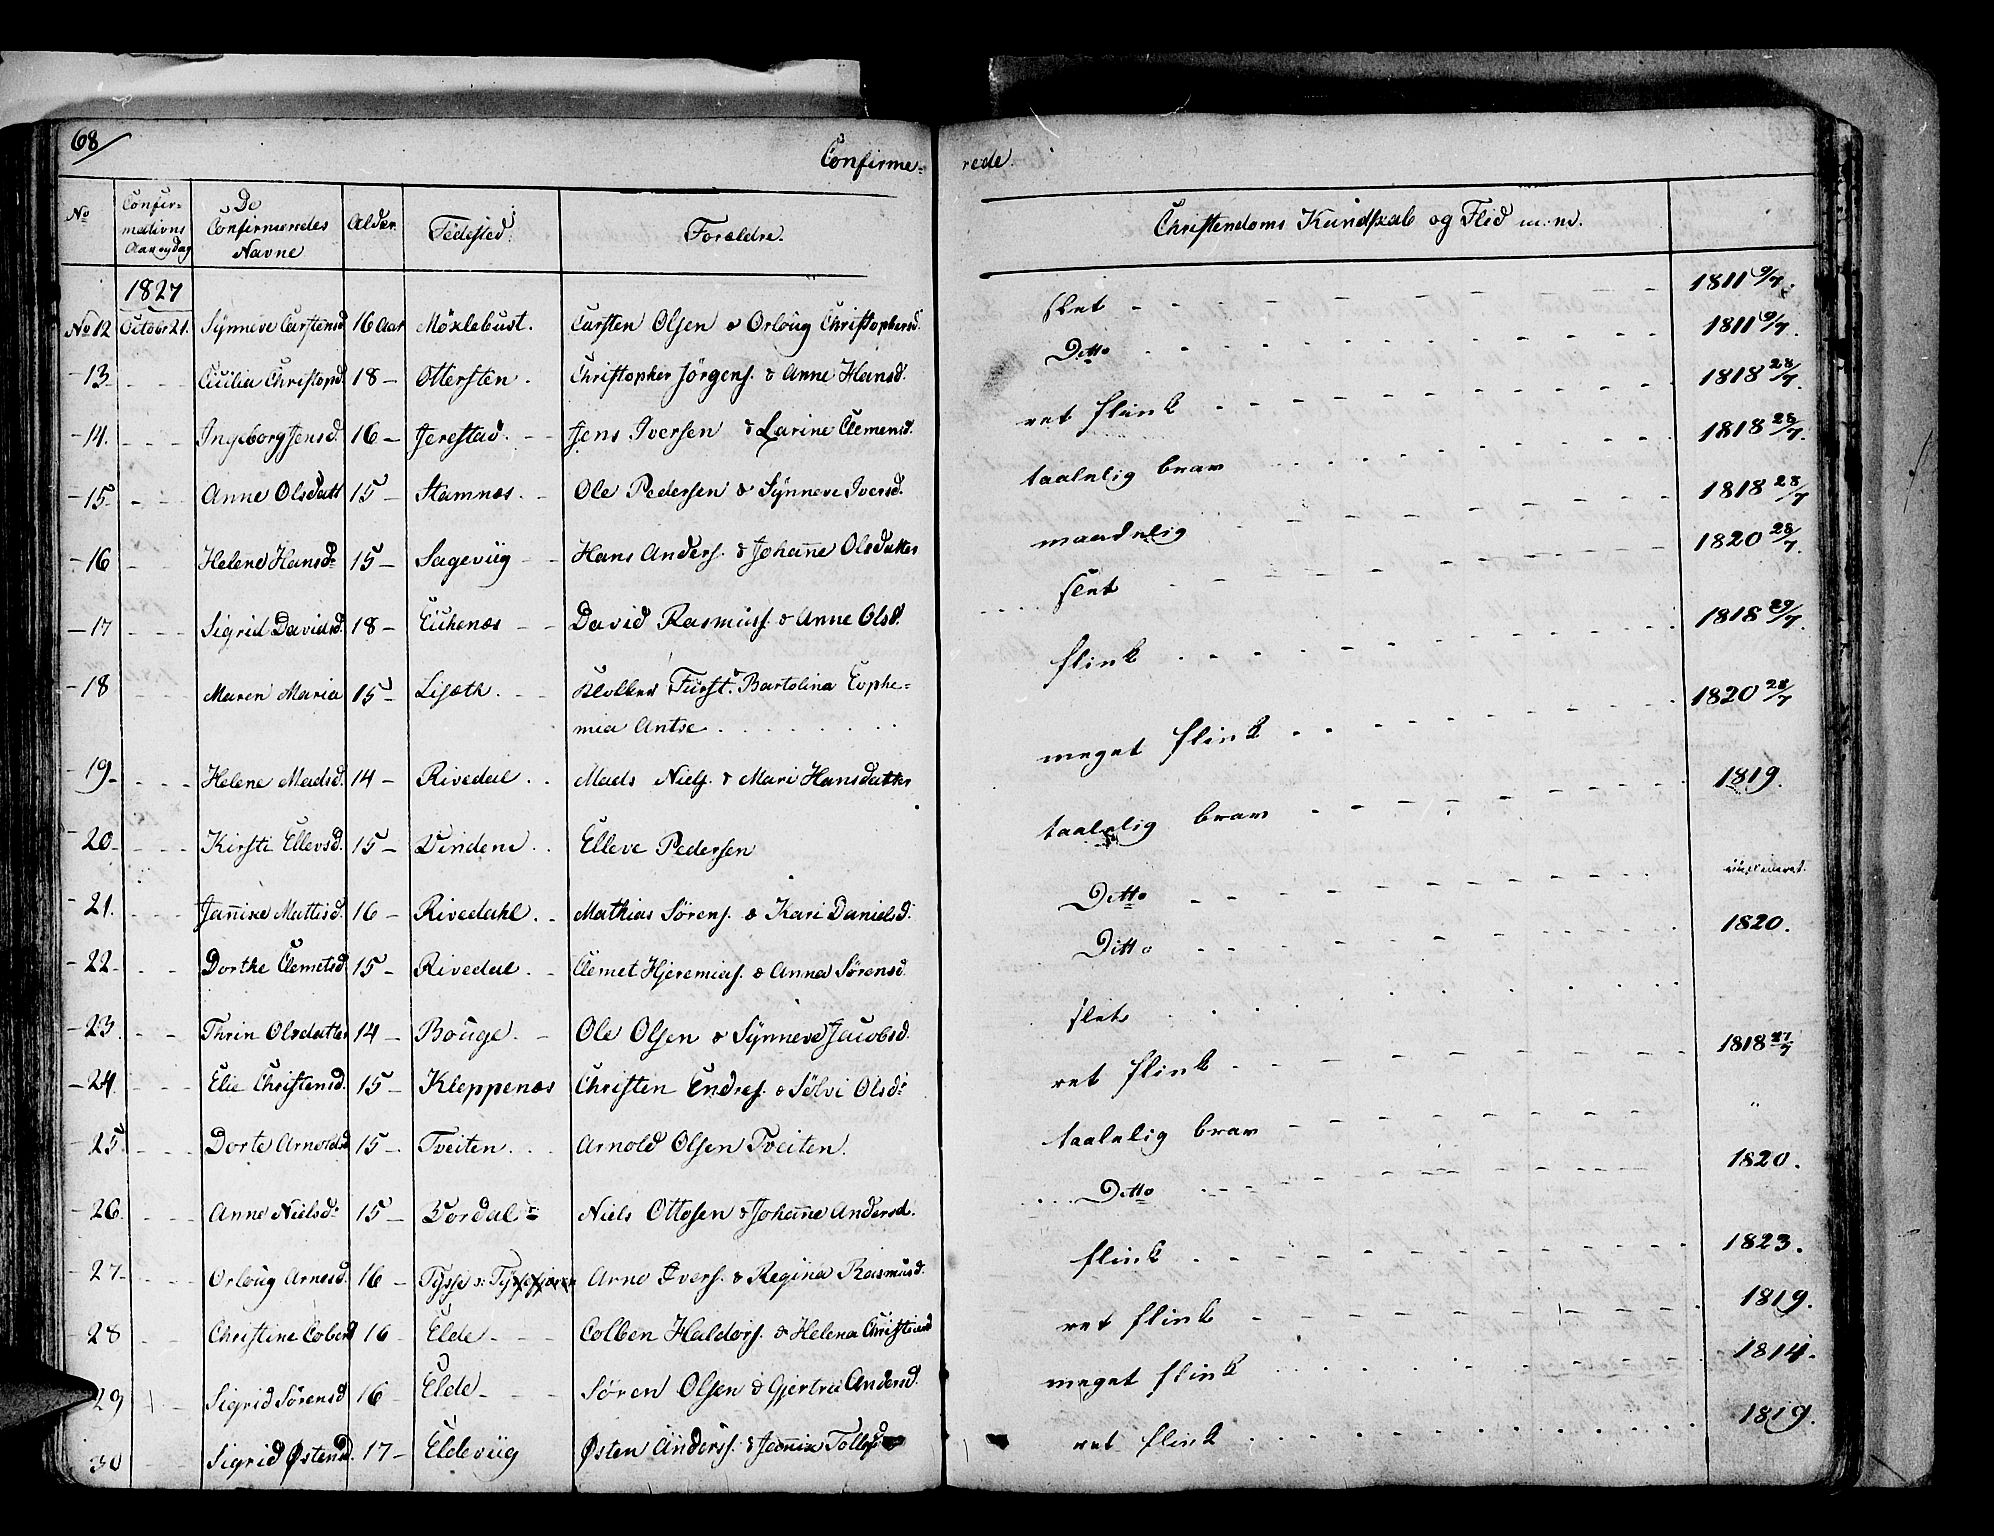 68
Confirme=
rede.
No
Confir=
mations
Aar og dag
De
Confirmeredes
Navne
Alder
Födested.
Forældre.
Christendoms Kundskab og Flid m: m.
1827
No 12 Octobr 21. Synneve Carstensd 16 Aar Möxlebust. Carsten Olsen & Orloug Christophersd. slet 1811 9/7.
13 Cicilia Christopd. 18 Ottersten. Christopher Jörgens. & Anne Hansd. Ditto 1811 9/7.
14. Ingeborg Jensd. 16 Jerestad. Jens Iversen & Larine Clemensd. ret flink 1818 28/7.
15 Anne Olsdatt 15 Stamnæs. Ole Pedersen & Synneve Iversd. taalelig brav 1818 28/7.
16 Helene Hansd. 15 Sagevüg Hans Anders. & Johanne Olsdatter maadelig 1818 28/7
17 Sigrid Davidsd. 18 Eükenæs David Rasmus. & Anne Olsd. slet 1820 28/7.
18 Maren Maria 15 Lisæth. Klokker Fürst. Bartolina Euphe=
mia Antse flink 1818 29/7.
19 Helene Madsd. 14 Rivedal. Mads Niels. & Mari Hansdatter meget flink 1820 28/7
20 Kirsti Ellevsd. 15 Vindene Elleve Pedersen taalelig brav 1819.
21. Jannike Mattisd. 16 Rivedahl. Mathias Sörens. & Kari Danielsd. Ditto
22 Dorthe Clemetsd 15 Rivedal Clemet Hjeremias. & Anna Sörensd. Ditto 1820.
23 Thrin Olsdatter 14 Bouge. Ole Olsen & Synneve Jacobsd. slet
24 Elie Christensd. 15 Kleppenæs Christen Endres. & Sölvi Olsd. ret flink 1818 27/7
25 Dorte Arnoldsd 15 Tveiten Arnold Olsen Tveiten. taalelig brav "
26 Anne Nielsd. 15 Vordal Niels Ottosen & Johanne Andersd. Ditto 1820.
27 Orloug Arnesd. 16 Tysse Arne Ivers. & Regina Rasmusd. flink 1823.
28 Christine Cobend 16 Elde Colben Haldors. & Helena Christiand ret flink 1819.
29 Sigrid Sörensd 16 Elde Sören Olsen & Gjertru Andersd. meget flink 1814.
30 Sigrid Østensd. 17 Eldevüg Østen Anderss. & Jannia ret flink 1819.